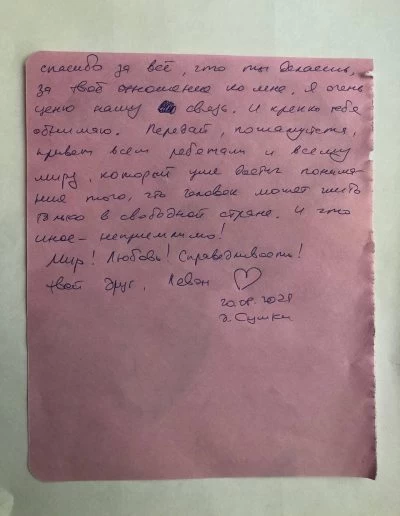 спасибо за всё, что ты делаешь,
за твоё отношение ко мне. Я очень
ценю нашу связь. И крепко тебя
обнимаю. Передай, пожалуйста,
привет всем ребятам и всему
миру, который уже достиг понима-
ния того, что человек может жить
только в свободной стране. И что
иное – неприемлимо!
Мир! Любовь! Справедливость!
твой друг, Леван ♡
г. Сумки